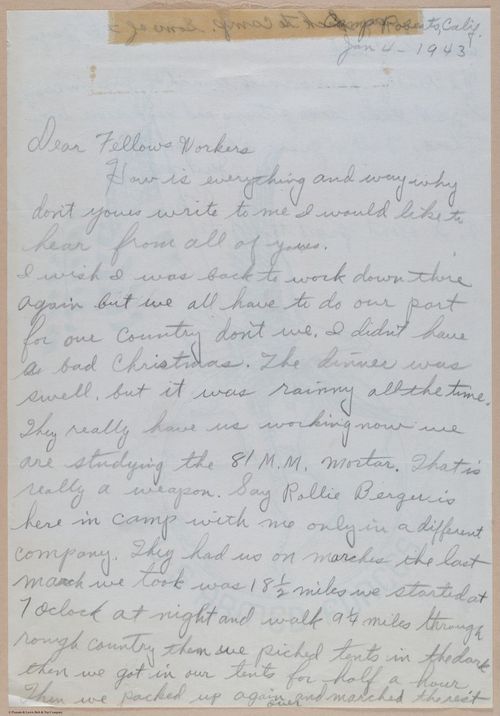 Roberts, Calif.
Jan 4 - 1943
Dear Fellows Workers
How is everything and way why
don't youes write to me I would like to
hear from all of youes.
I wish I was back to work down there
again but we all have to do our part
for one country don't we. I didn't have
a bad Christmas. The dinner was
swell, but it was rainny all the time.
They really have us working now we
are studying the 81 M.M. mortar. That is
really a weapon. Say Rollie Berger is
here in camp with me only in a different
company. They had us on marches the last
march we took was 18 1/2 miles we started at
7 Oclock at night and walk 9 1/4 miles through
rough country then we piched tents in the dark
then we got in our tents for half a hour
Then we packed up again and marched the rest
over